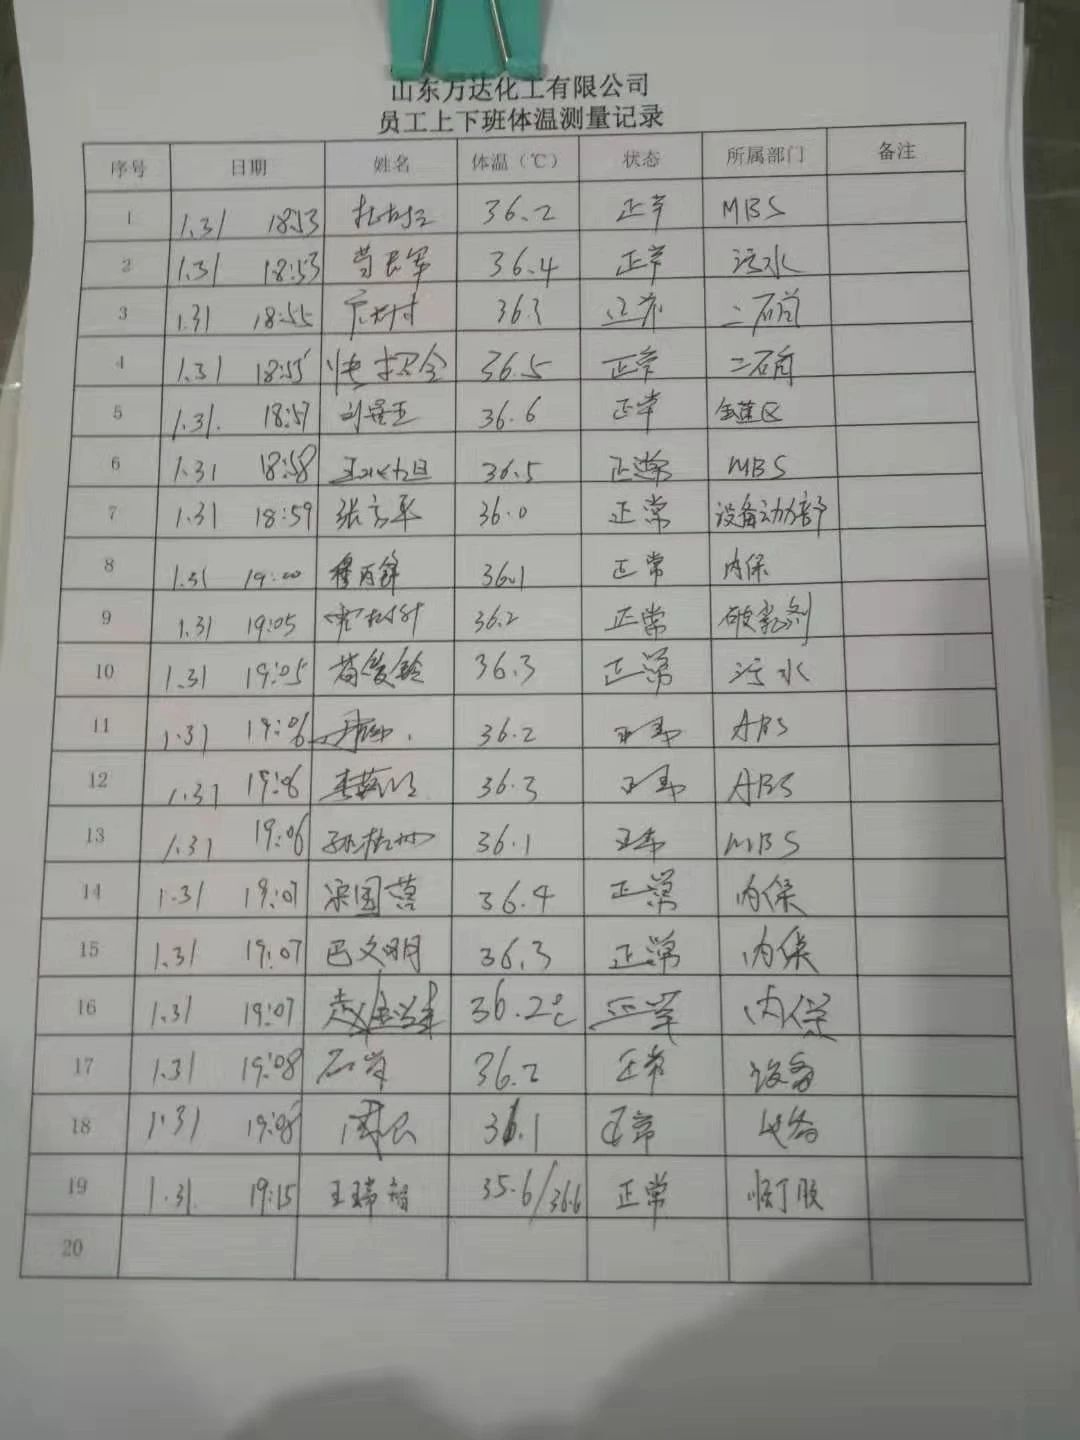 山东万达化工有限公司
员工上下班体温测量记录
序号 日期 姓名 体温(℃) 状态 所属部门 备注
1 1.31 18:53 36.2 正常 MBS
2 1.31 18:53 36.4 正常 污水
3 1.31 18:55 36.3 正常
4 1.31 18:55 36.5 正常
5 1.31. 18:57 36.6 正常
6 1.31 18:58 36.5 正常 MBS
7 1.31 18:59 张京平 36.0 正常 设备动力部
8 1.31 19:00 36.1 正常 内保
9 1.31 19:05 36.2 正常 破乳剂
10 1.31 19:05 36.3 正常 污水
11 1.31 19:06 36.2 正常 ABS
12 1.31 19:06 36.3 正常 ABS
13 1.31 19:06 36.1 正常 MBS
14 1.31 19:07 宋国营 36.4 正常 内保
15 1.31 19:07 巴文明 36.3 正常 内保
16 1.31 19:07 36.2℃ 正常 内保
17 1.31 19:08 石岩 36.2 正常 设备
18 1.31 19:08 36.1 正常 设备
19 1.31. 19:15 王瑞智 35.6/36.6 正常 顺丁胶
20